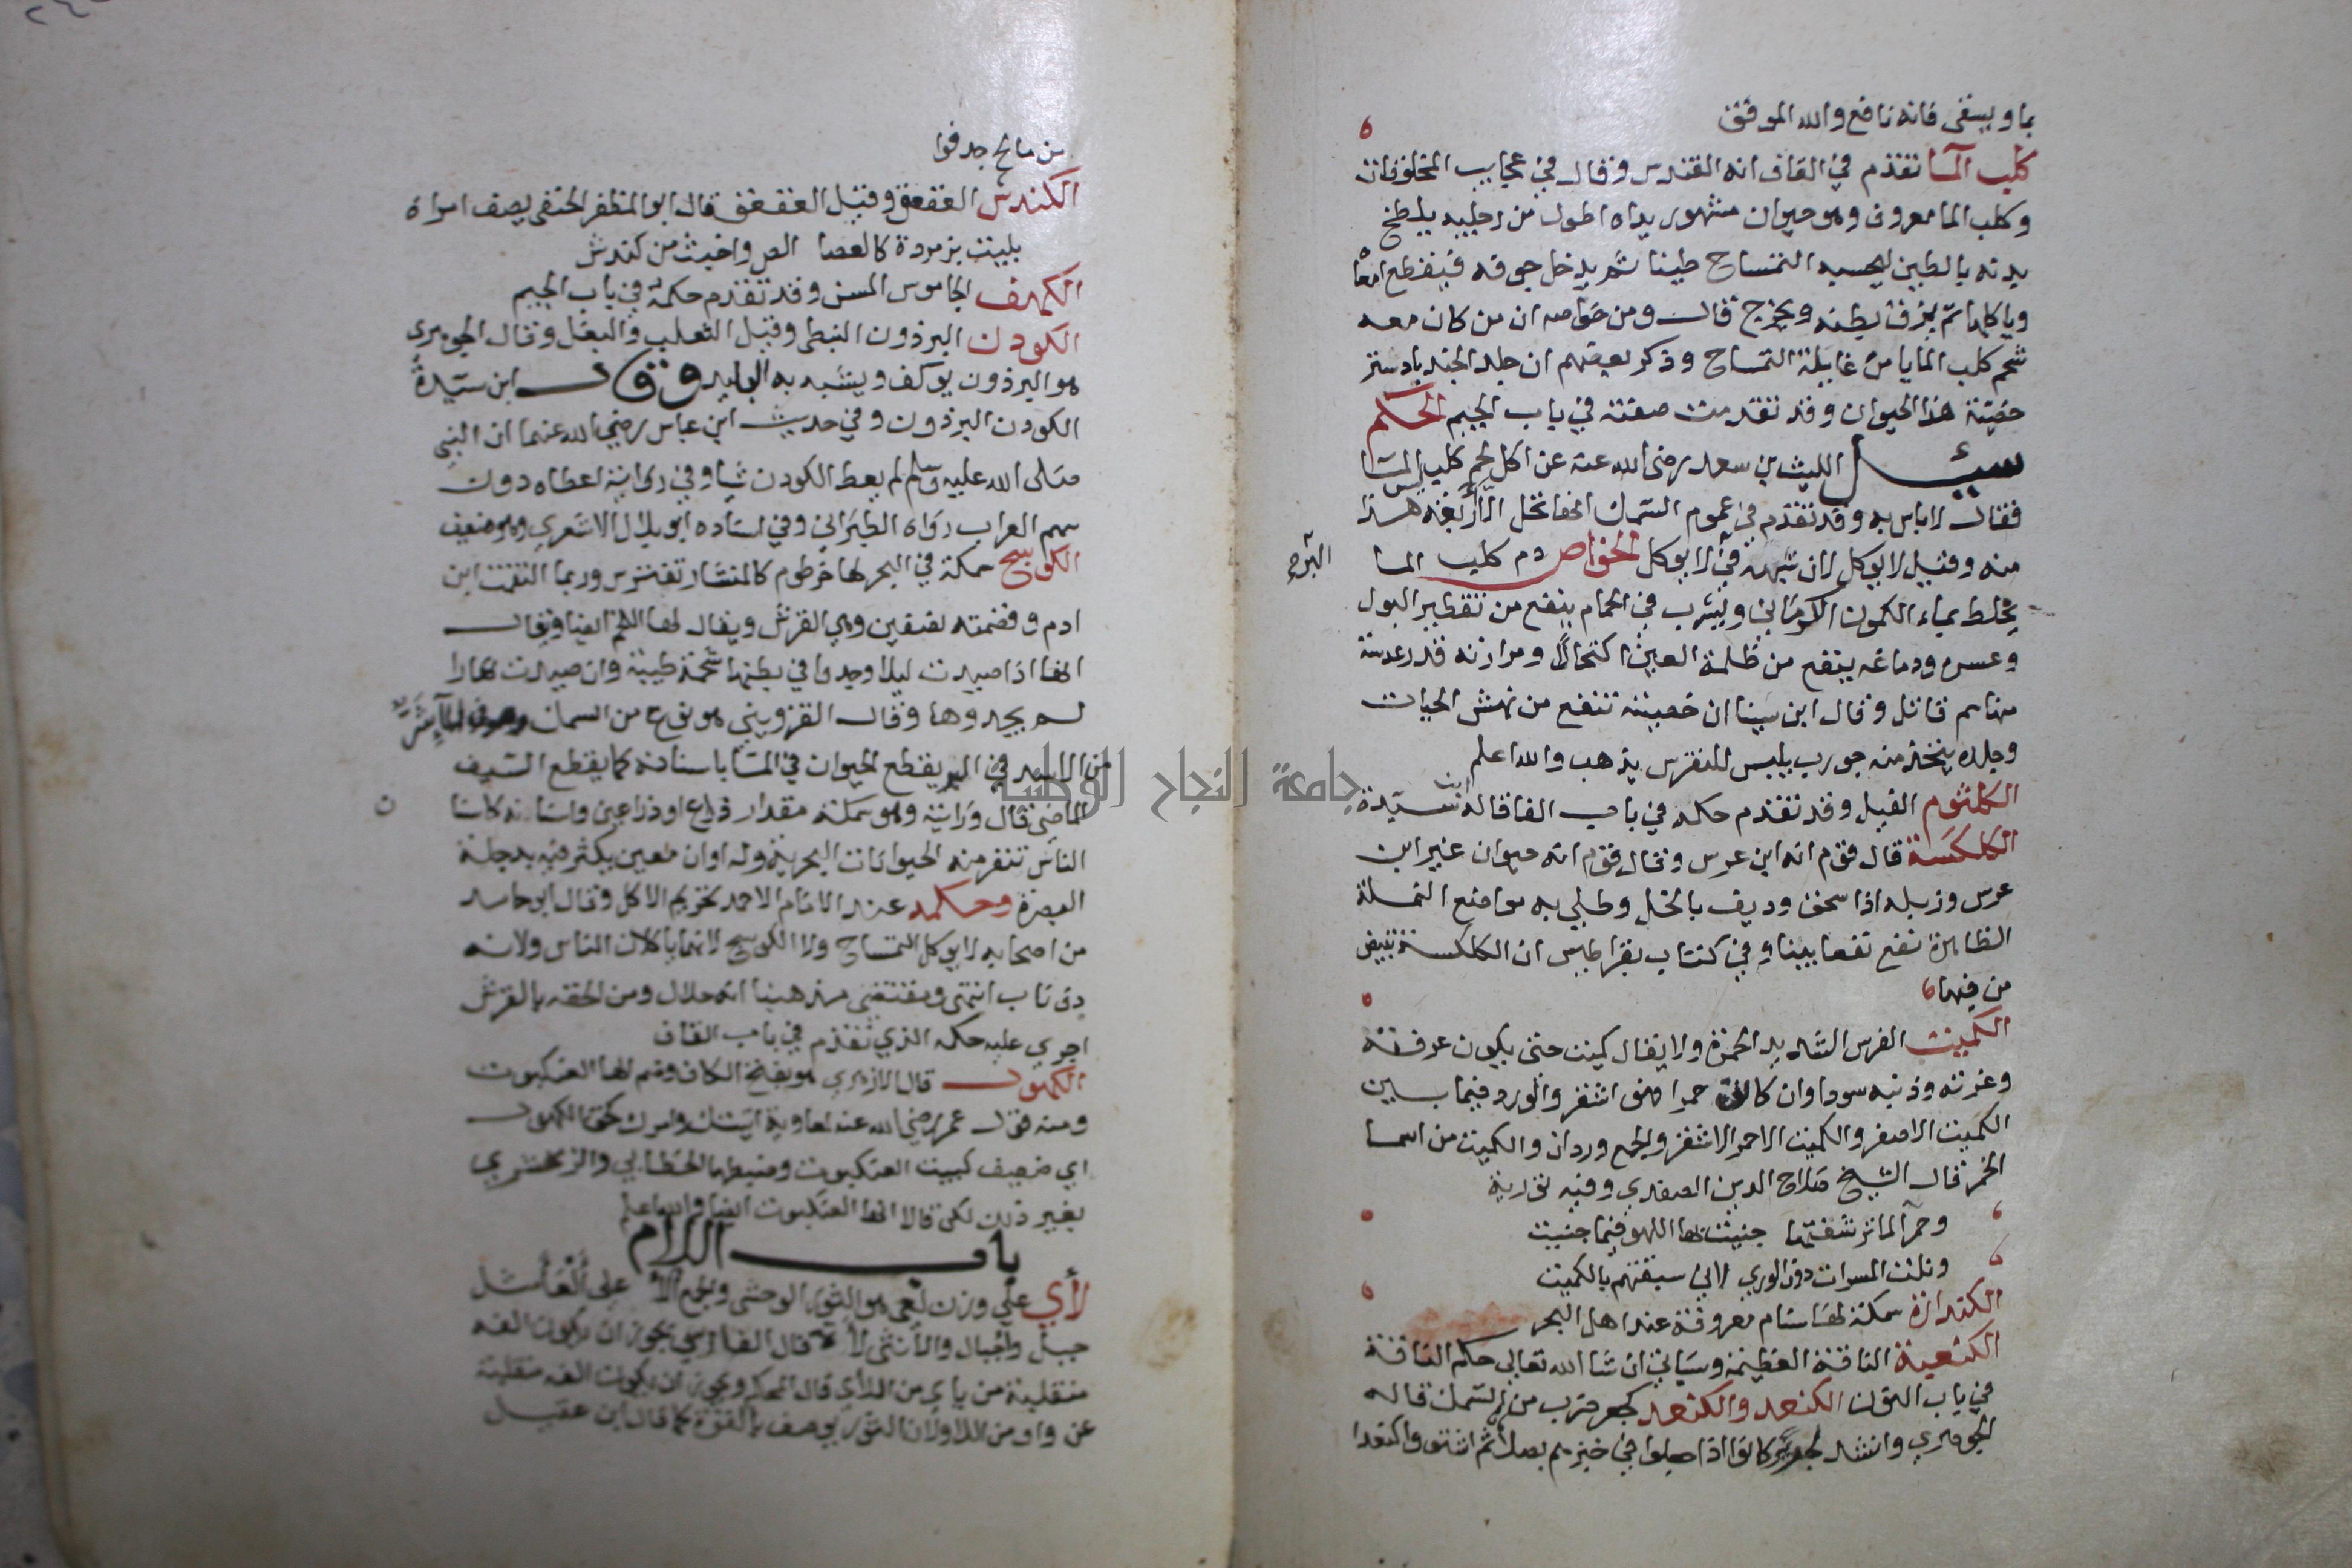 بماء ويسقى فانه نافع والله الموفق
كلب الما تقدم في القاف انه القندس وقال في عجايب المخلوقات
وكلب الما معروف وهو حيوان مشهور يداه اطول من رجليه يلطخ
بدنه بالطين ليحسبه التمساح طينا ثم يدخل جوفه فيقطع امعاه
وياكلها ثم يمزق بطنه ويخرج قال ومن خواصه ان من كان معه
شحم كلب الما يامن غايلة التمساح وذكر بعضهم ان جلد الجند بادستر
خصية هذا الحيوان وقد تقدمت صفته في باب الجيم الحكم
سيل الليث بن سعد رضي الله عنه عن اكل لحم كلب الما
فقال لا باس به وقد تقدم في عموم السمك انها تحل الا اربعة ليس هذا
منه وقيل لا يوكل لان شبهه في البر لا يوكل الخواص دم كلب الما
يخلط بماء الكمون الكرماني ويشرب في الحمام ينفع من تقطير البول
وعسره ودماغه ينفع من ظلمة العين اكتحالا ومرارته قدر عدسة
منها سم قاتل وقال ابن سينا ان خصيته تنفع من نهش الحيات
وجلده يتخذ منه جورب يلبس للنقرس يذهب والله اعلم
الكلثوم الفيل وقد تقدم حكمه في باب الفا قاله ابن سيدة
الكلكسة قال قوم انه ابن عرس وقال قوم انه حيوان غير ابن
عرس وزبله اذا سحق وديف بالخل وطلي به مواضع النملة
الظاهرة نفع نفعا بينا وفي كتاب بقراطيس ان الكلكسة تبيض
من فيها
الكميت الفرس الشديد الحمرة ولا يقال كميت حتى يكون عرفه
وغرته وذنبه سودا وان كانت حمرا فهو اشقر والورد فيما بين
الكميت الاصفر والكميت الاحمر الاشقر والجمع وردان والكميت من اسما
الخمر قال الشيخ صلاح الدين الصفدي وفيه تورية
وحمرا لما ترشفتها جنيت بها اللهو فيما جنيت
ونلت المسرات دون الورى لاني سبقتهم بالكميت
الكندارة سمكة لها سنام معروفة عند اهل البحر
الكنعبة الناقة العظيمة وسياتي ان شا الله تعالى حكم الناقة
في باب النون الكنعد والكنعد كجعر ضرب من السمك قاله
الجوهري وانشد لجرير كانوا اذا جعلوا في خبزهم بصلا ثم اشتووا كنعدا
من مالح جدفوا
الكندش العقعق وقيل العقعق قال ابو المظفر الحنفي يصف امراة
بليت بزمردة كالعصا الص واخبث من كندش
الكهف الجاموس المسن وقد تقدم حكمه في باب الجيم
الكودن البرذون البطي وقيل الثعلب والبغل وقال الجوهري
هو البرذون يوكف ويشبه به البليد وقال ابن سيدة
الكودن البرذون وفي حديث ابن عباس رضي الله عنهما ان النبي
صلى الله عليه وسلم لم يعط الكودن شيا وفي رواية اعطاه دون
سهم العراب رواه الطبراني وفي اسناده ابو بلال الاشعري وهو ضعيف
الكوسج سمكة في البحر لها خرطوم كالمنشار تفترس وربما التقمت ابن
ادم وقضمته نصفين وهي القرش ويقال لها اللخم ايضا ويقال
انها اذا صيدت ليلا وجدوا في بطنها شحمة طيبة وان صيدت نهارا
لم يجدوها وقال القزويني هو نوع من السمك وهو في الما شر
من الاسد في البر يقطع الحيوان في الما باسنانه كما يقطع السيف
الماضي قال ورايته وهو سمكة مقدار ذراع او ذراعين واسنانه كاسنا
ن
الناس تنفر منه الحيوانات البحرية وله اوان معين يكثر فيه بدجلة
البصرة وحكمه عند الامام الاحمد تحريم الاكل وقال ابو حامد
من اصحابه لا يوكل التمساح ولا الكوسج لانهما ياكلان الناس ولانه
ذو ناب انتهى ومقتضى مذهبنا انه حلال ومن الحقه بالقرش
اجري عليه حكمه الذي تقدم في باب القاف
الكهول قال الازهري هو بفتح الكاف وضم الها العنكبوت
ومنه قول عمر رضي الله عنه لمعاوية اتيتك وامرك كحق الكهول
اي ضعيف كبيت العنكبوت وضبطها الخطابي والزمخشري
بغير ذلك لكن قالا انها العنكبوت ايضا والله اعلم
باب اللام
لأي علي وزن لعى هو الثور الوحشي والجمع ألآ على ألعا مثل
جبل واجبال والانثى لأة قال الفارسي يجوز ان يكون الفه
منقلبة من ياي من اللأي قال المحكم ويجوز ان يكون الفه منقلبة
عن واو من اللاو لان الثور يوصف بالقوة كما قال ابن عقيل
جامعة النجاح الوطنية